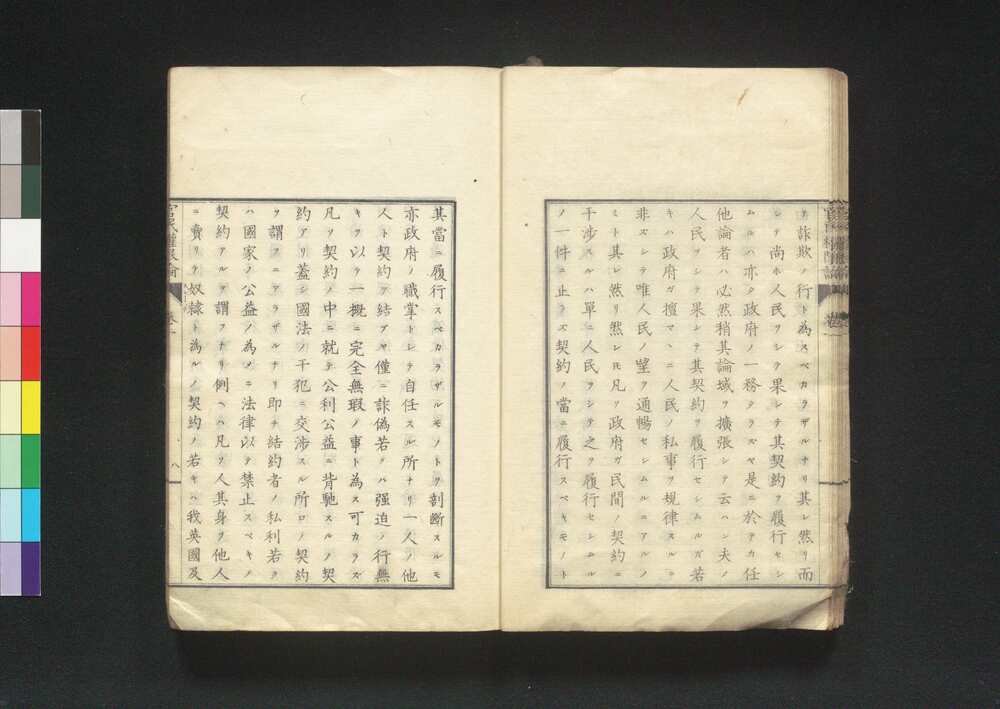 ヲ詐欺ノ行ト為スベカラザルナリ其レ然リ而
シテ尚ホ人民ヲシテ果シテ其契約ヲ履行セシ
ムルハ亦タ政府ノ一務タラズヤ是ニ於テカ任
他論者ハ必然稍其論域ヲ擴張シテ云ハン夫ノ
人民ヲシテ果シテ其契約ヲ履行セシムルガ若
キハ政府ガ擅マヽニ人民ノ私事ヲ規律スルニ
非ズシテ唯人民ノ望ヲ通暢セシムルニアルノ
ミト其レ然リ然レ𪜈凡ソ政府ガ民間ノ契約ニ
干渉スルハ單ニ人民ヲシテ之ヲ履行セシムル
ノ一件ニ止ラズ契約ノ當ニ履行スベキモノト
其當ニ履行スベカラザルモノトヲ剖斷スルモ
亦政府ノ職掌トシテ自任スル所ナリ一人ノ他
人ト契約ヲ結ブヤ僅ニ詐偽若クハ强迫ノ行無
キヲ以テ一概ニ完全無瑕ノ事ト為ス可カラズ
凡ソ契約ノ中ニ就テ公利公益ニ背馳スルノ契
約アリ蓋シ國法ノ干犯ニ交渉スル所ロノ契約
ヲ謂フニアラザルナリ即チ結約者ノ私利若ク
ハ國家ノ公益ノ為メニ法律以テ禁止スベキノ
契約アルヲ謂フナリ例ヘハ凡ソ人其身ヲ他人
ニ賣リテ奴隷ト為ルノ契約ノ若キハ我英國及
官民權限論
卷一
八